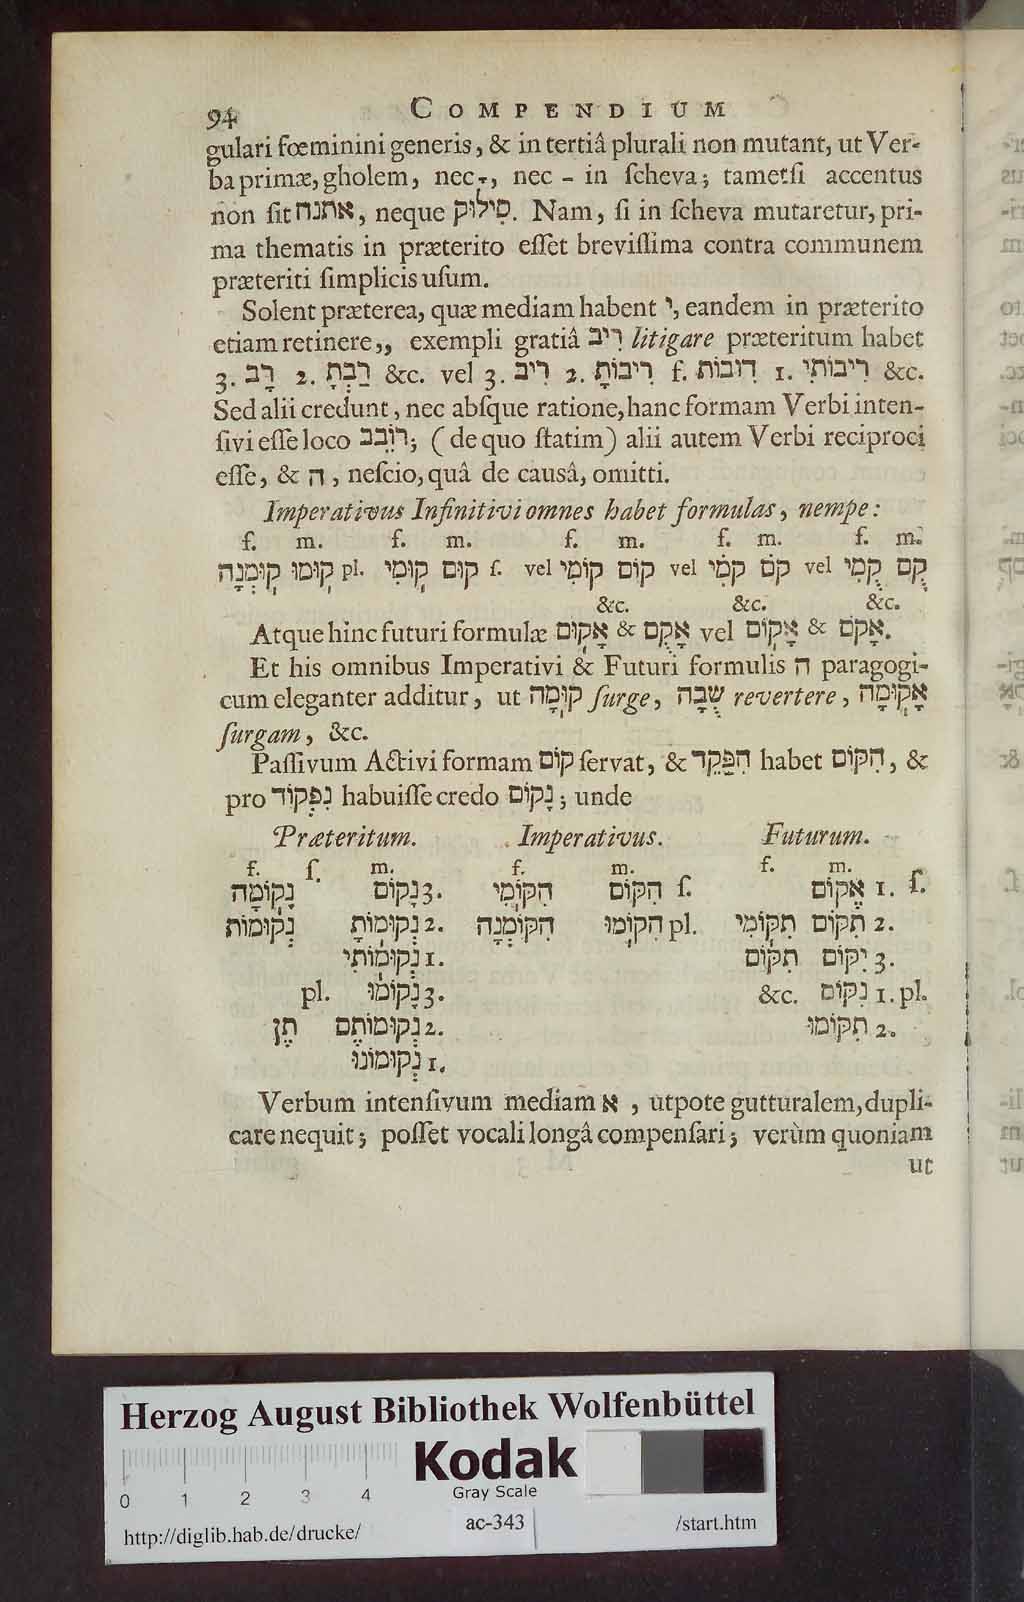 94 COMPENDIUM
gulari fœminini generis, & in tertiâ plurali non mutant, ut Ver-
ba primæ, gholem, nec ָ, nec - in ſcheva; tametſi accentus
non ſit אתנח, neque סִילוּק. Nam, ſi in ſcheva mutaretur, pri-
ma thematis in præterito eſſet breviſſima contra communem
præteriti ſimplicis uſum.
Solent præterea, quæ mediam habent י, eandem in præterito
etiam retinere,, exempli gratiâ רִיב litigare præteritum habet
3. רָב 2. רַבְתָּ &c. vel 3. רִיב 2. רִיבוֹתָ f. רִיבוֹת 1. רִיבוֹתִי &c.
Sed alii credunt, nec abſque ratione, hanc formam Verbi inten-
ſivi eſſe loco רוֹבֵב; (de quo ſtatim) alii autem Verbi reciproci
eſſe, & ה, neſcio, quâ de causâ, omitti.
Imperativus Infinitivi omnes habet formulas, nempe:
f. m. f. m. f. m. f. m. f. m.
קֻם קֻמִי vel קֹם קֹמִי vel קוֹם קוֹמִי vel ſ. קוּם קוּמִי pl. קוּמוּ קוּמְנָה
&c. &c. &c.
Atque hinc futuri formulæ אָקוּם & אָקֻם vel אָקוֹם & אָקֹם.
Et his omnibus Imperativi & Futuri formulis ה paragogi-
cum eleganter additur, ut קוּמָה ſurge, שֻׁבָה revertere, אָקוּמָה
ſurgam, &c.
Paſſivum Activi formam קוֹם ſervat, & הִפָּקֵד habet הִקּוֹם, &
pro נִפְקוֹד habuiſſe credo נָקוֹם; unde
Præteritum. Imperativus. Futurum.
f. ſ. m. f. m. f. m.
נָקוֹמָה נָקוֹם 3. הִקּוֹמִי הִקּוֹם ſ. אֶקּוֹם 1. ſ.
נְקוּמוֹת נְקוּמוֹתָ 2. הִקּוֹמְנָה הִקּוֹמוּ pl. תִקּוֹמִי תִקּוֹם 2.
נְקוּמוֹתִי 1. תִקּוֹם יִקּוֹם 3.
pl. נָקוֹמוּ 3. &c. נִקּוֹם 1. pl.
תֶן נְקוּמוֹתֶם 2. תִקּוֹמוּ 2.
נְקוּמוֹנוּ 1.
Verbum intenſivum mediam א, utpote gutturalem, dupli-
care nequit; poſſet vocali longâ compenſari; verùm quoniam
ut
Herzog August Bibliothek Wolfenbüttel
Kodak
Gray Scale
0 1 2 3 4
http://diglib.hab.de/drucke/ ac-343 /start.htm